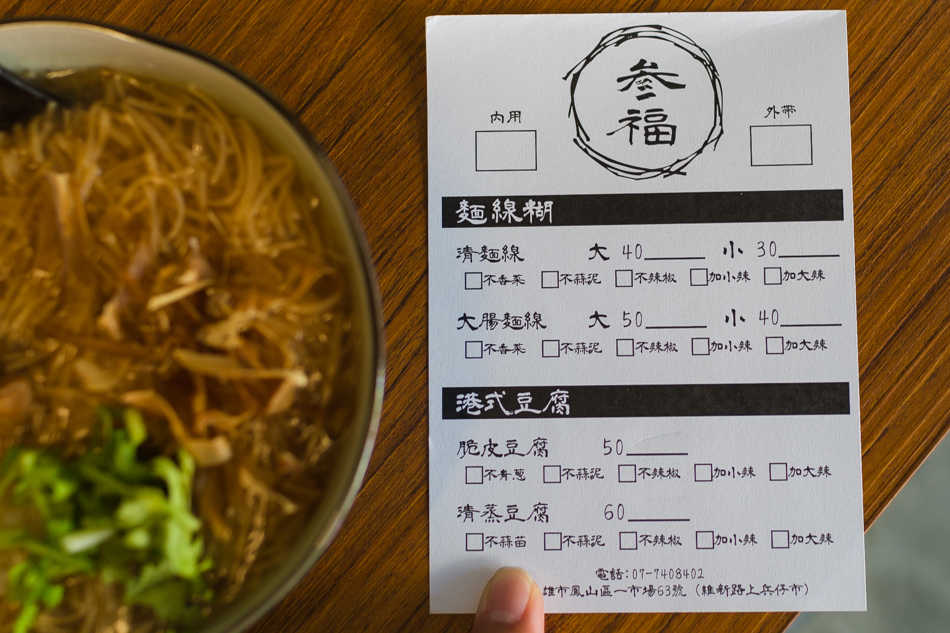 參福
內用
外帶
麵線糊
清麵線 大 40 小 30
不香菜 不蒜泥 不辣椒 加小辣 加大辣
大腸麵線 大 50 小 40
不香菜 不蒜泥 不辣椒 加小辣 加大辣
港式豆腐
脆皮豆腐 50
不青蔥 不蒜泥 不辣椒 加小辣 加大辣
清蒸豆腐 60
不蒜苗 不蒜泥 不辣椒 加小辣 加大辣
電話:07-7408402
雄市鳳山區一市場63號(維新路上兵仔市)